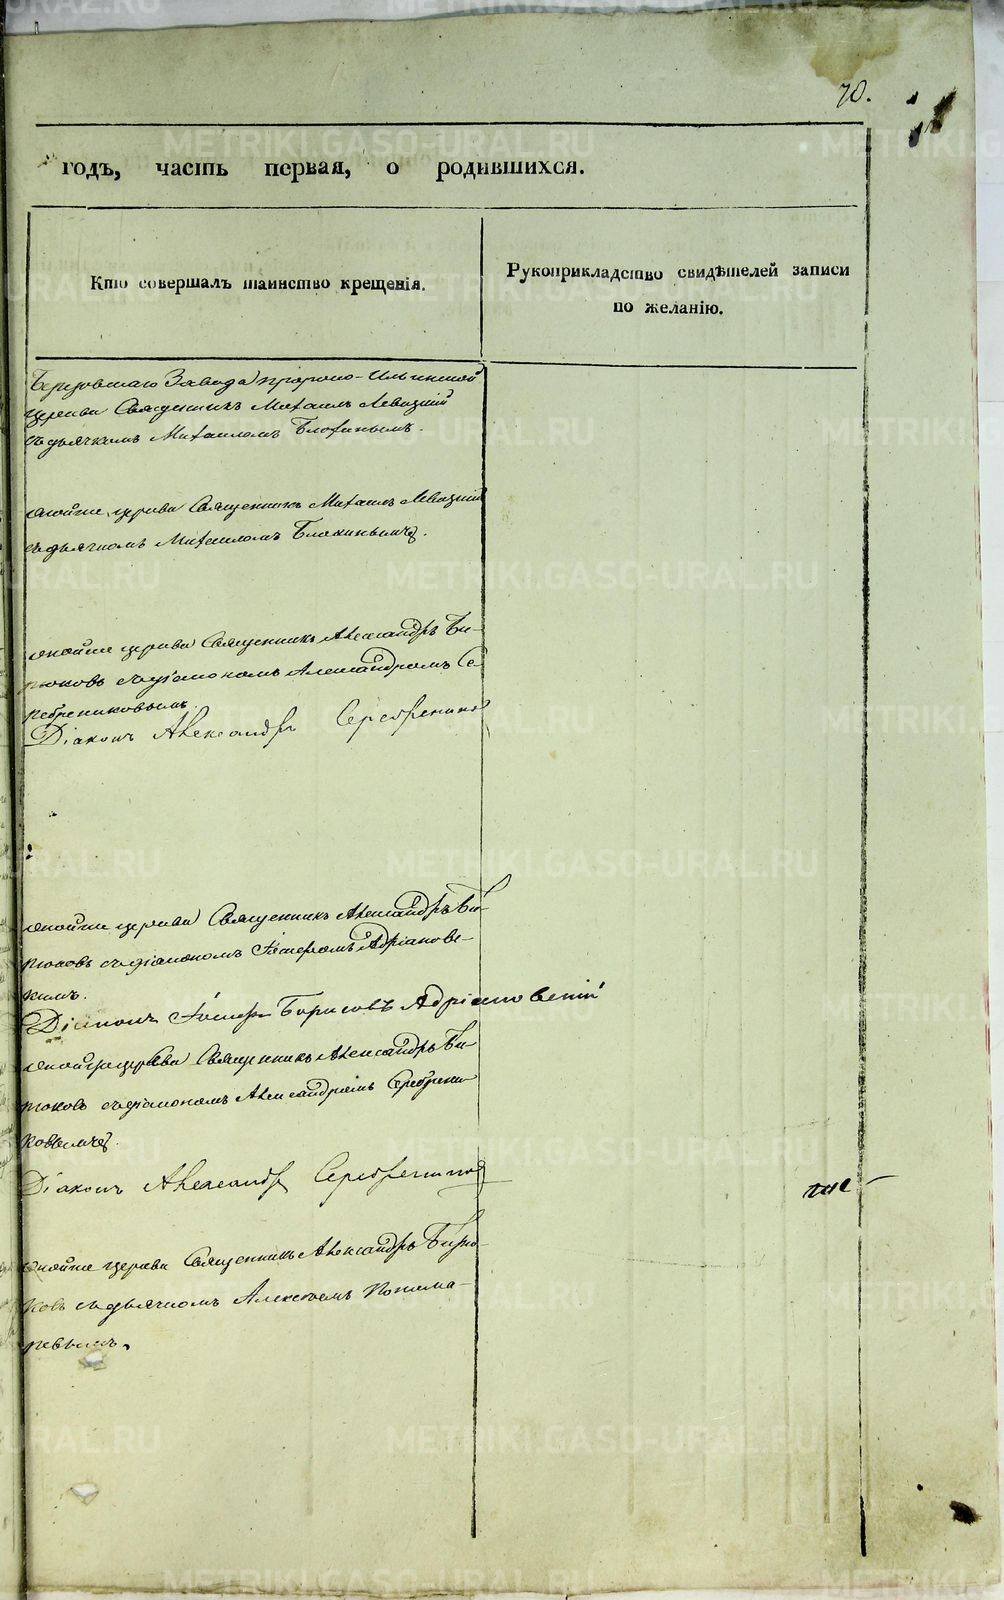 70.
годъ, часть первая, о родившихся.
Кто совершалъ таинство крещенія.
Рукоприкладство свидѣтелей записи
по желанію.
Завода пророко-Ильинской
церкви Священникъ Михаилъ Левицкій
съ дьячкомъ Михаиломъ
тойже церкви Священникъ Михаилъ Левицкій
съ дьячкомъ Михаиломъ
тойже церкви Священникъ Александръ Би-
рюковъ съ діакономъ Александромъ Се
ребрениковымъ
Діаконъ Александръ Серебрениковъ
тойже церкви Священникъ Александръ Би-
рюковъ съ діакономъ Адріановс-
кимъ.
Діаконъ Борисовъ Адріановскій
тойже церкви Священникъ Александръ Би-
рюковъ съ діакономъ Александромъ Серебрени
ковымъ.
Діаконъ Александръ Серебрениковъ
тойже церкви Священникъ Александръ Бирю-
ковъ съ дьячкомъ Алексѣемъ Понома-
ревымъ.
METRIKI.GASO-URAL.RU